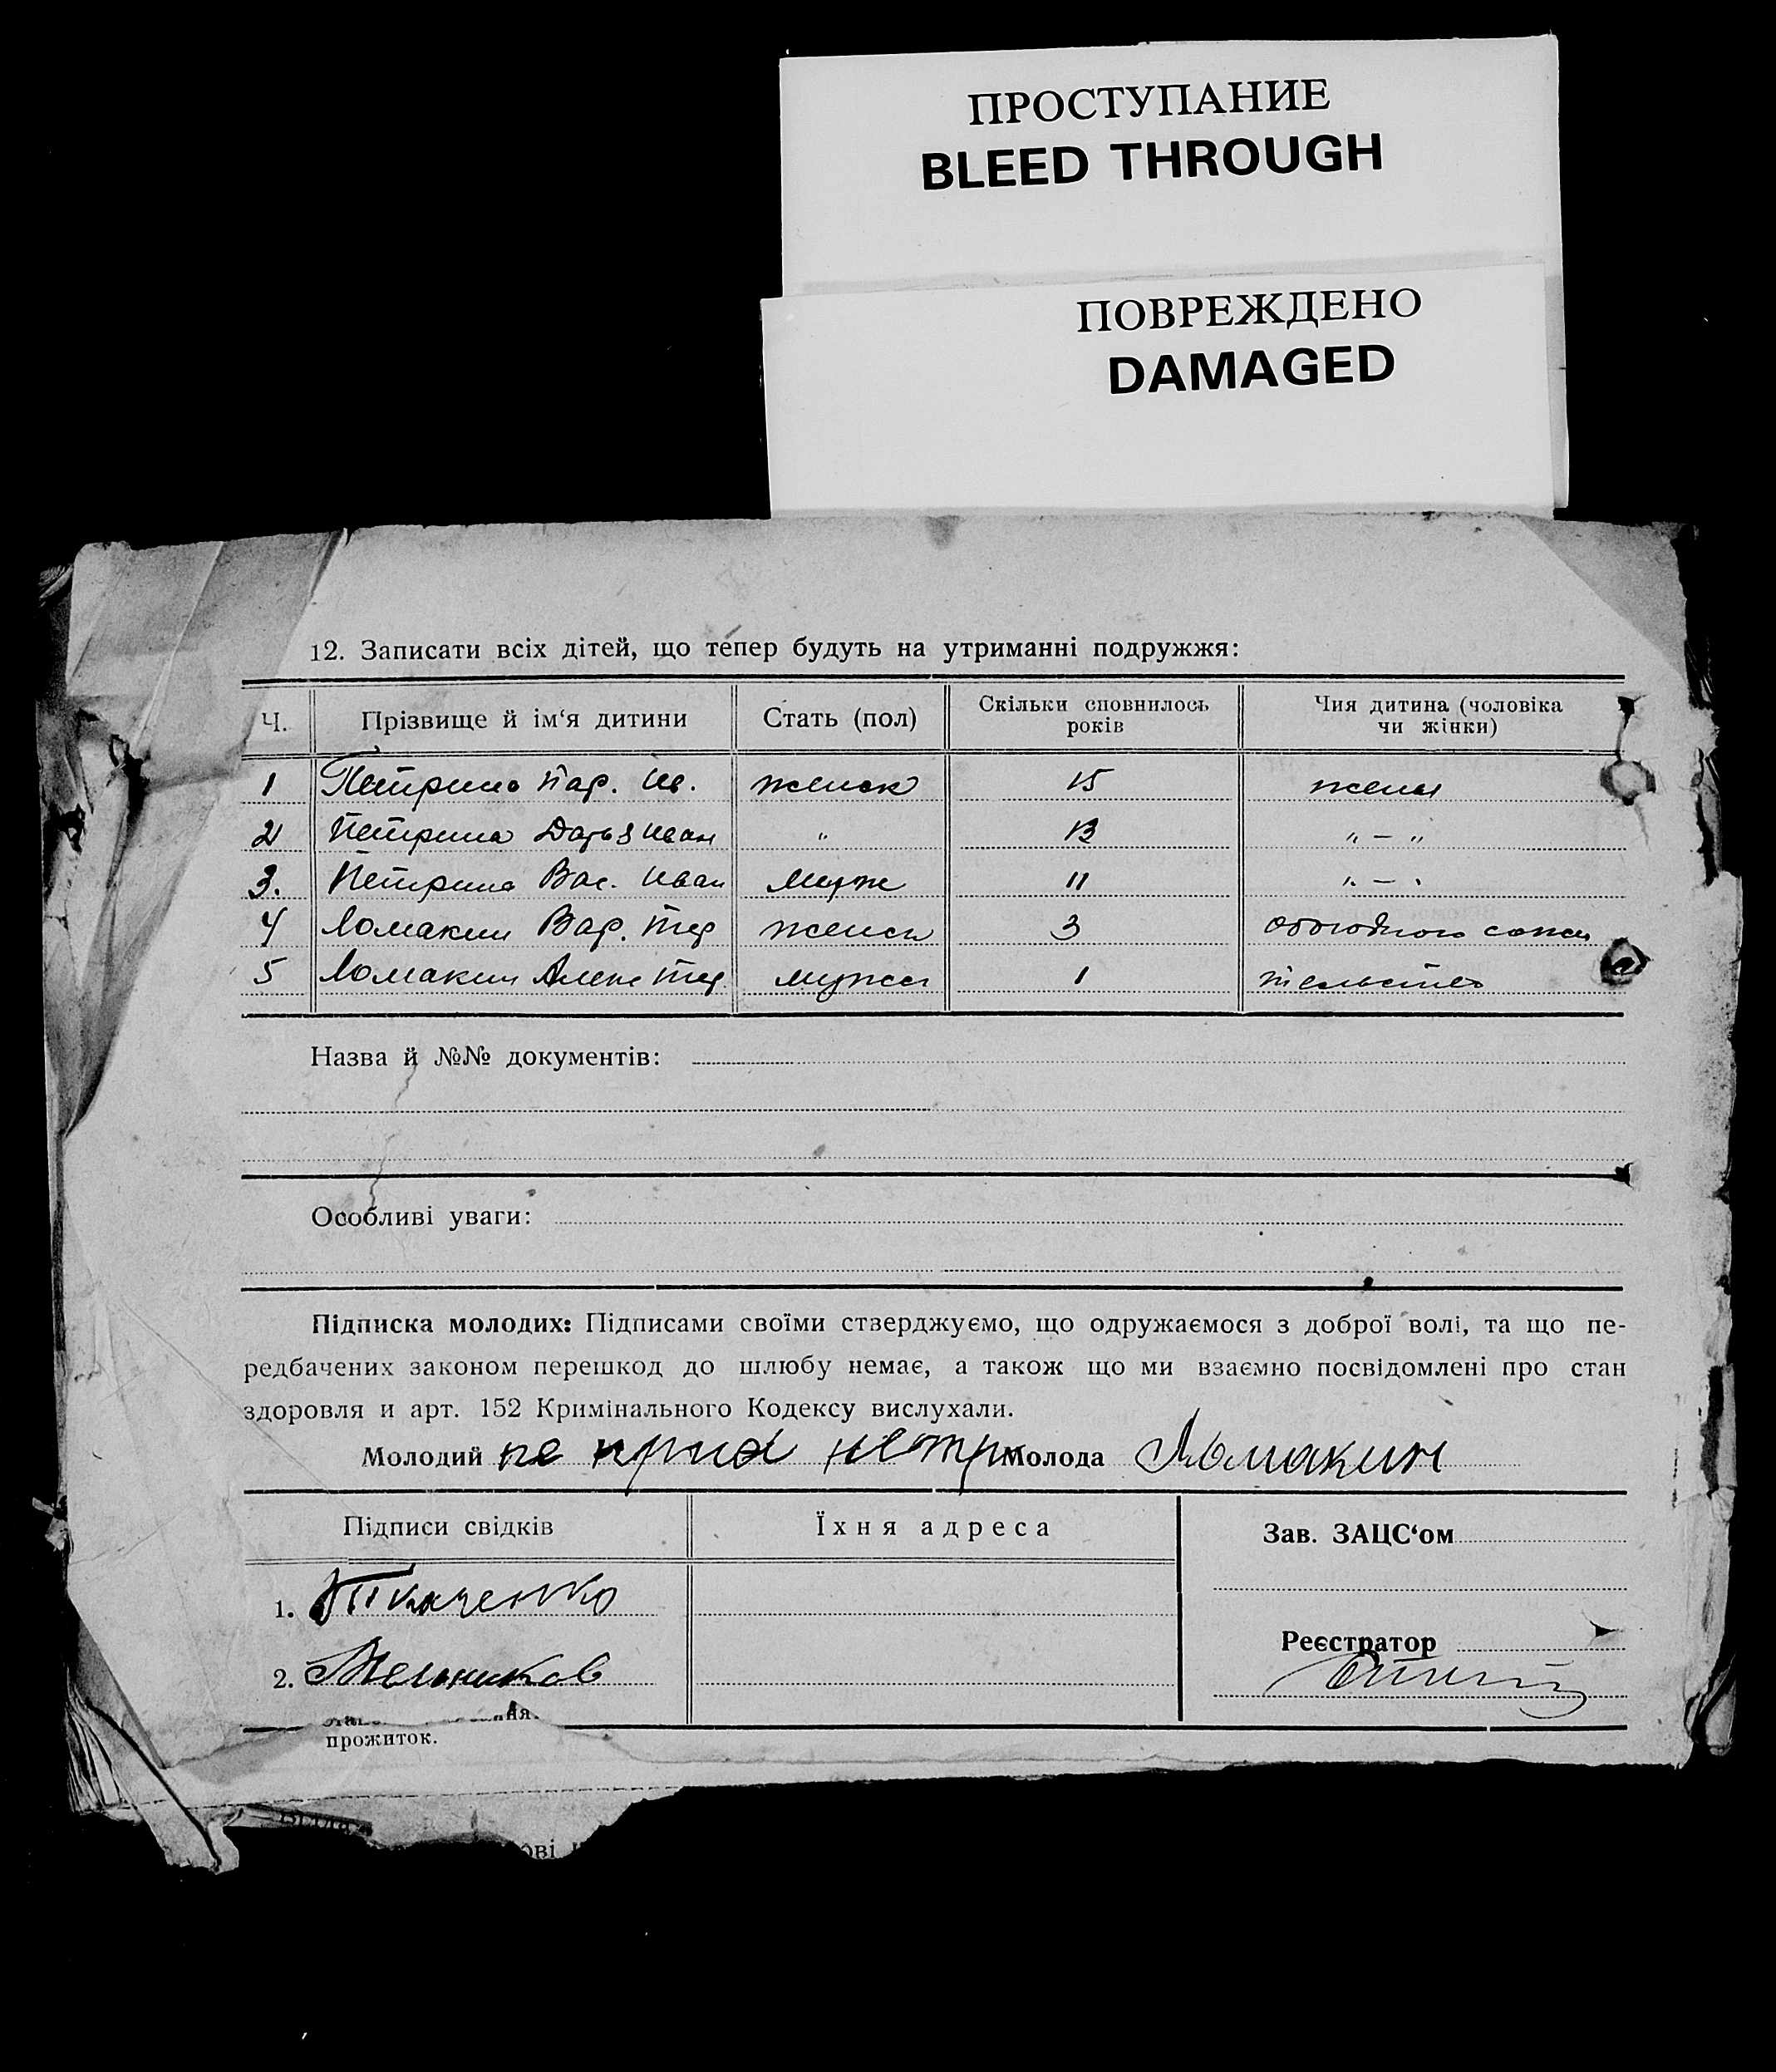 ПРОСТУПАНИЕ
BLEED THROUGH
ПОВРЕЖДЕНО
DAMAGED
12. Записати всіх дітей, що тепер будуть на утриманні подружжя:
Ч. Прізвище й ім‘я дитини Стать (пол) Скільки сповнилось років Чия дитина (чоловіка чи жінки)
1 Петрина Пар. Ив. женск 15 жены
2 Петрина Дарья Иван " 13 " – "
3. Петрина Вас. Иван муж 11 " – "
4 Ломакин Вар. женск 3 обоюдного сожи
5 Ломакин Алекс мужск 1 тельство
Назва й №№ документів:
Особливі уваги:
Підписка молодих: Підписами своїми стверджуємо, що одружаємося з доброї волі, та що пе-
редбачених законом перешкод до шлюбу немає, а також що ми взаємно посвідомлені про стан
здоровля и арт. 152 Кримінального Кодексу вислухали.
Молодий Молода Ломакин
Підписи свідків Їхня адреса Зав. ЗАЦС‘ом
1. Ткаченко
Реєстратор
2. Мельников
прожиток.